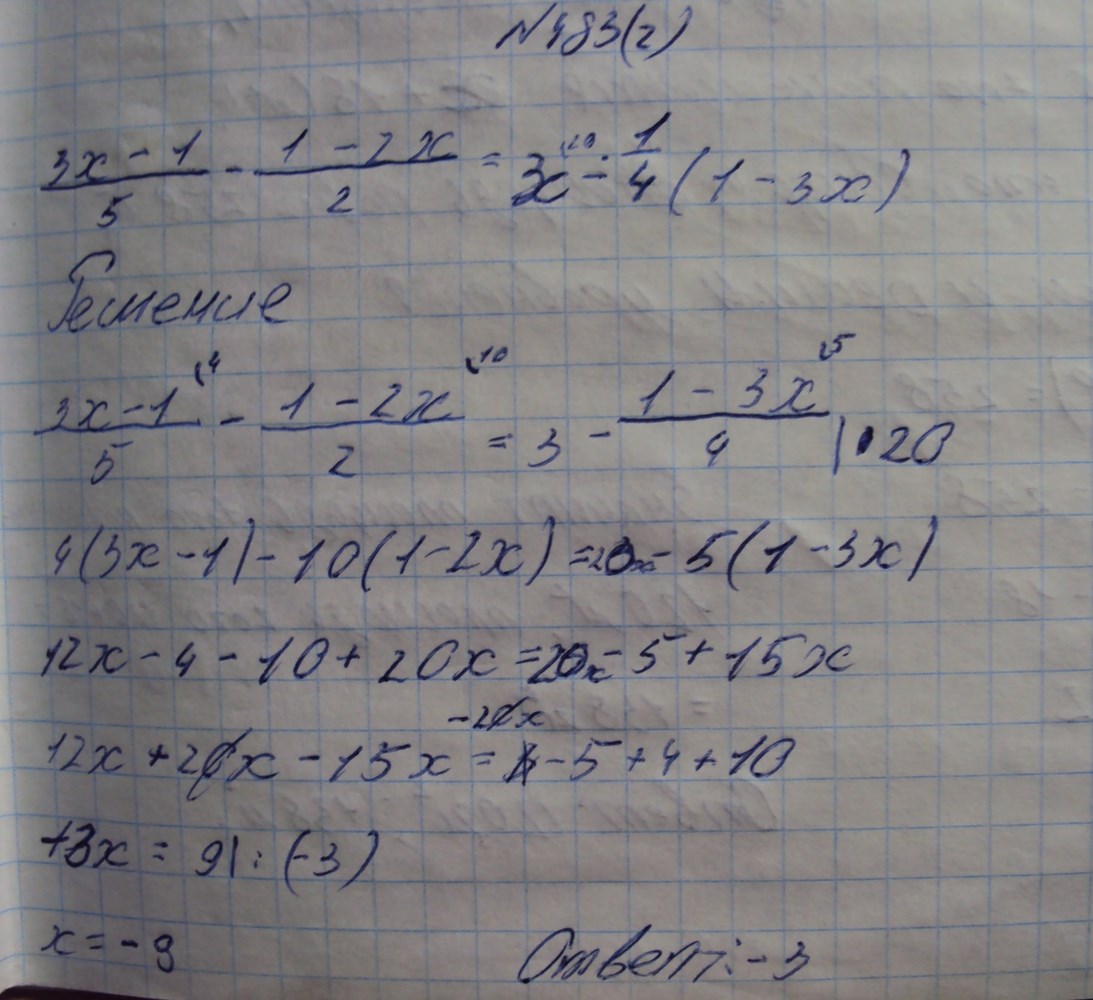 N483(г)
(3x - 1)/5 - (1 - 2x)/2 = 3x - 1/4 (1 - 3x)
Решение
(3x - 1)/5 \4 - (1 - 2x)/2 \10 = 3 - (1 - 3x)/4 \5 | · 20
4(3x - 1) - 10(1 - 2x) = 20x - 5(1 - 3x)
12x - 4 - 10 + 20x = 20x - 5 + 15x
12x + 20x - 15x - 20x = - 5 + 4 + 10
-3x = 9 | : (-3)
x = - 9
Ответ: - 3